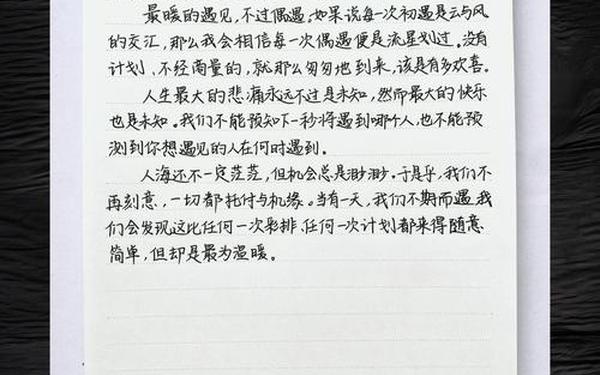 最暖的遇见,不过偶遇。如果说每一次初遇是云与风
的交汇,那么我会相信每一次偶遇便是流星划过。没有
计划、不经商量的,就那么匆匆地到来,该是有多欢喜。
人生最大的悲痛永远不过是未知,然而最大的快乐
也是未知。我们不能预知下一秒将遇到哪个人,也不能预
测到你想遇见的人在何时遇到。
人海还不一定茫茫,但机会总是渺渺。于是乎,我们不
再刻意,一切都托付与机缘。当有一天,我们不期而遇,我
们会发现这比任何一次彩排、任何一次计划都来得随意
简单,但却是最为温暖。